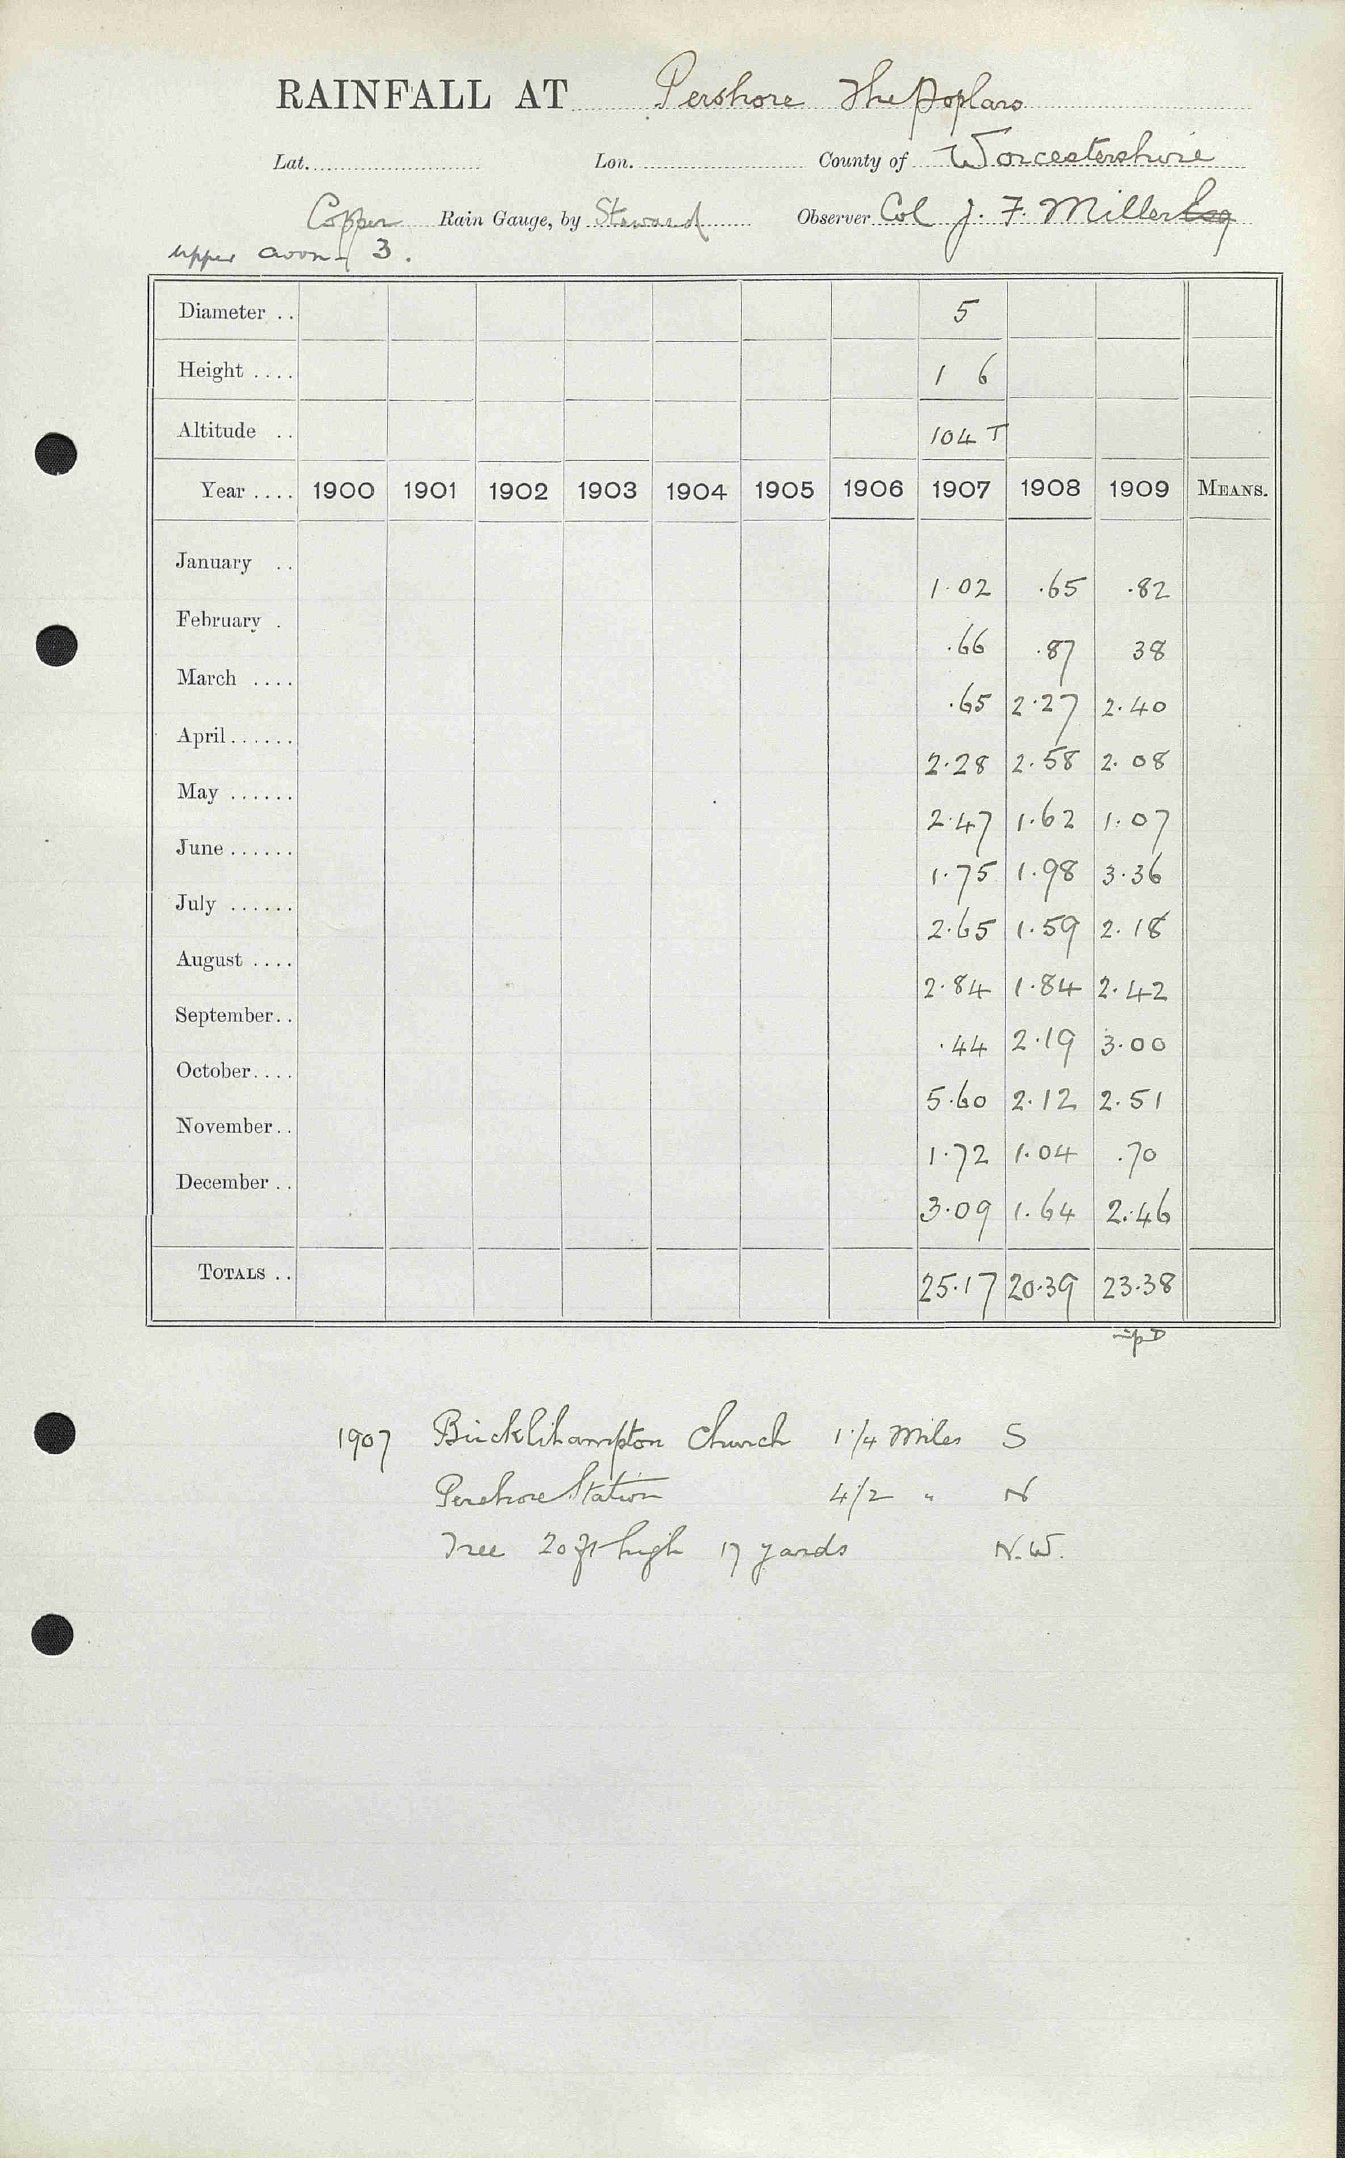 RAINFALL AT Pershore The Poplars
Lat. Lon. County of Worcestershire
Copper Rain Gauge, by Steward Observer Col J. F. Miller Esq
Upper Avon 3.
Diameter .. 5
Height .... 1 6
Altitude .. 104 T
Year .... 1900 1901 1902 1903 1904 1905 1906 1907 1908 1909 MEANS.
January .. 1.02 .65 .82
February . .66 .87 38
March .... .65 2.27 2.40
April...... 2.28 2.58 2.08
May ...... 2.47 1.62 1.07
June ...... 1.75 1.98 3.36
July ...... 2.65 1.59 2.18
August .... 2.84 1.84 2.42
September.. .44 2.19 3.00
October.... 5.60 2.12 2.51
November.. 1.72 1.04 .70
December .. 3.09 1.64 2.46
TOTALS .. 25.17 20.39 23.38
1907 Bricklehampton Church 1 1/4 Miles S
Pershore Station 4 1/2 " N
Tree 20 ft high 17 yards N.W.